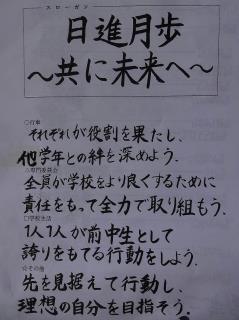 スローガン
日進月歩
～共に未来へ～
○行事
それぞれが役割を果たし、
他学年との絆を深めよう.
△専門委員会
全員が学校をより良くするために
責任をもって全力で取り組もう.
□学校生活
1人1人が前中生として
誇りをもてる行動をしよう.
☆その他
先を見据えて行動し、
理想の自分を目指そう.